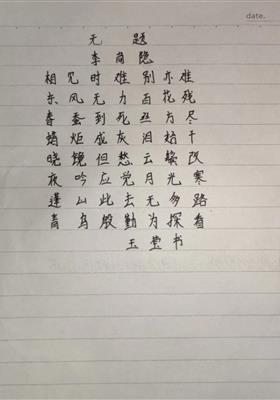 date.
无题
李商隐
相见时难别亦难
东风无力百花残
春蚕到死丝方尽
蜡炬成灰泪始干
晓镜但愁云鬓改
夜吟应觉月光寒
蓬山此去无多路
青鸟殷勤为探看
玉莹书